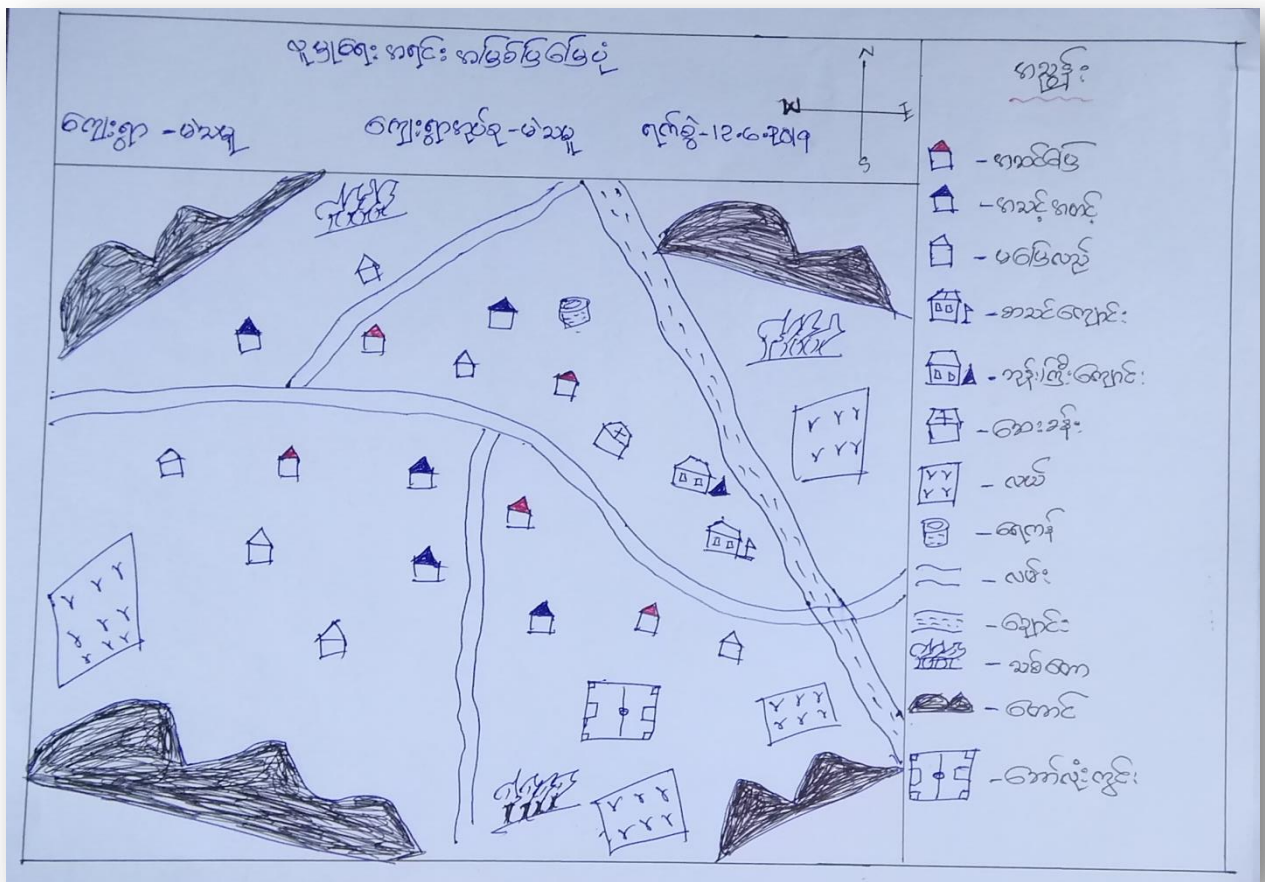 လူမှုရေး အရင်း အမြစ်ပြမြေပုံ
ကျေးရွာ - မဲသမူ ကျေးရွာအုပ်စု - မဲသမူ ရက်စွဲ - ၁၁.၆.၂၀၁၅
N
W E
S
အညွှန်း
- အဆင်ပြေ
- အသင့်အတင့်
- မပြေလည်
- စာသင်ကျောင်း
- ဘုန်းကြီးကျောင်း
- ဆေးခန်း
- လယ်
- ရေကန်
- လမ်း
- ချောင်း
- သစ်တော
- တောင်
- ဘော်လုံးကွင်း